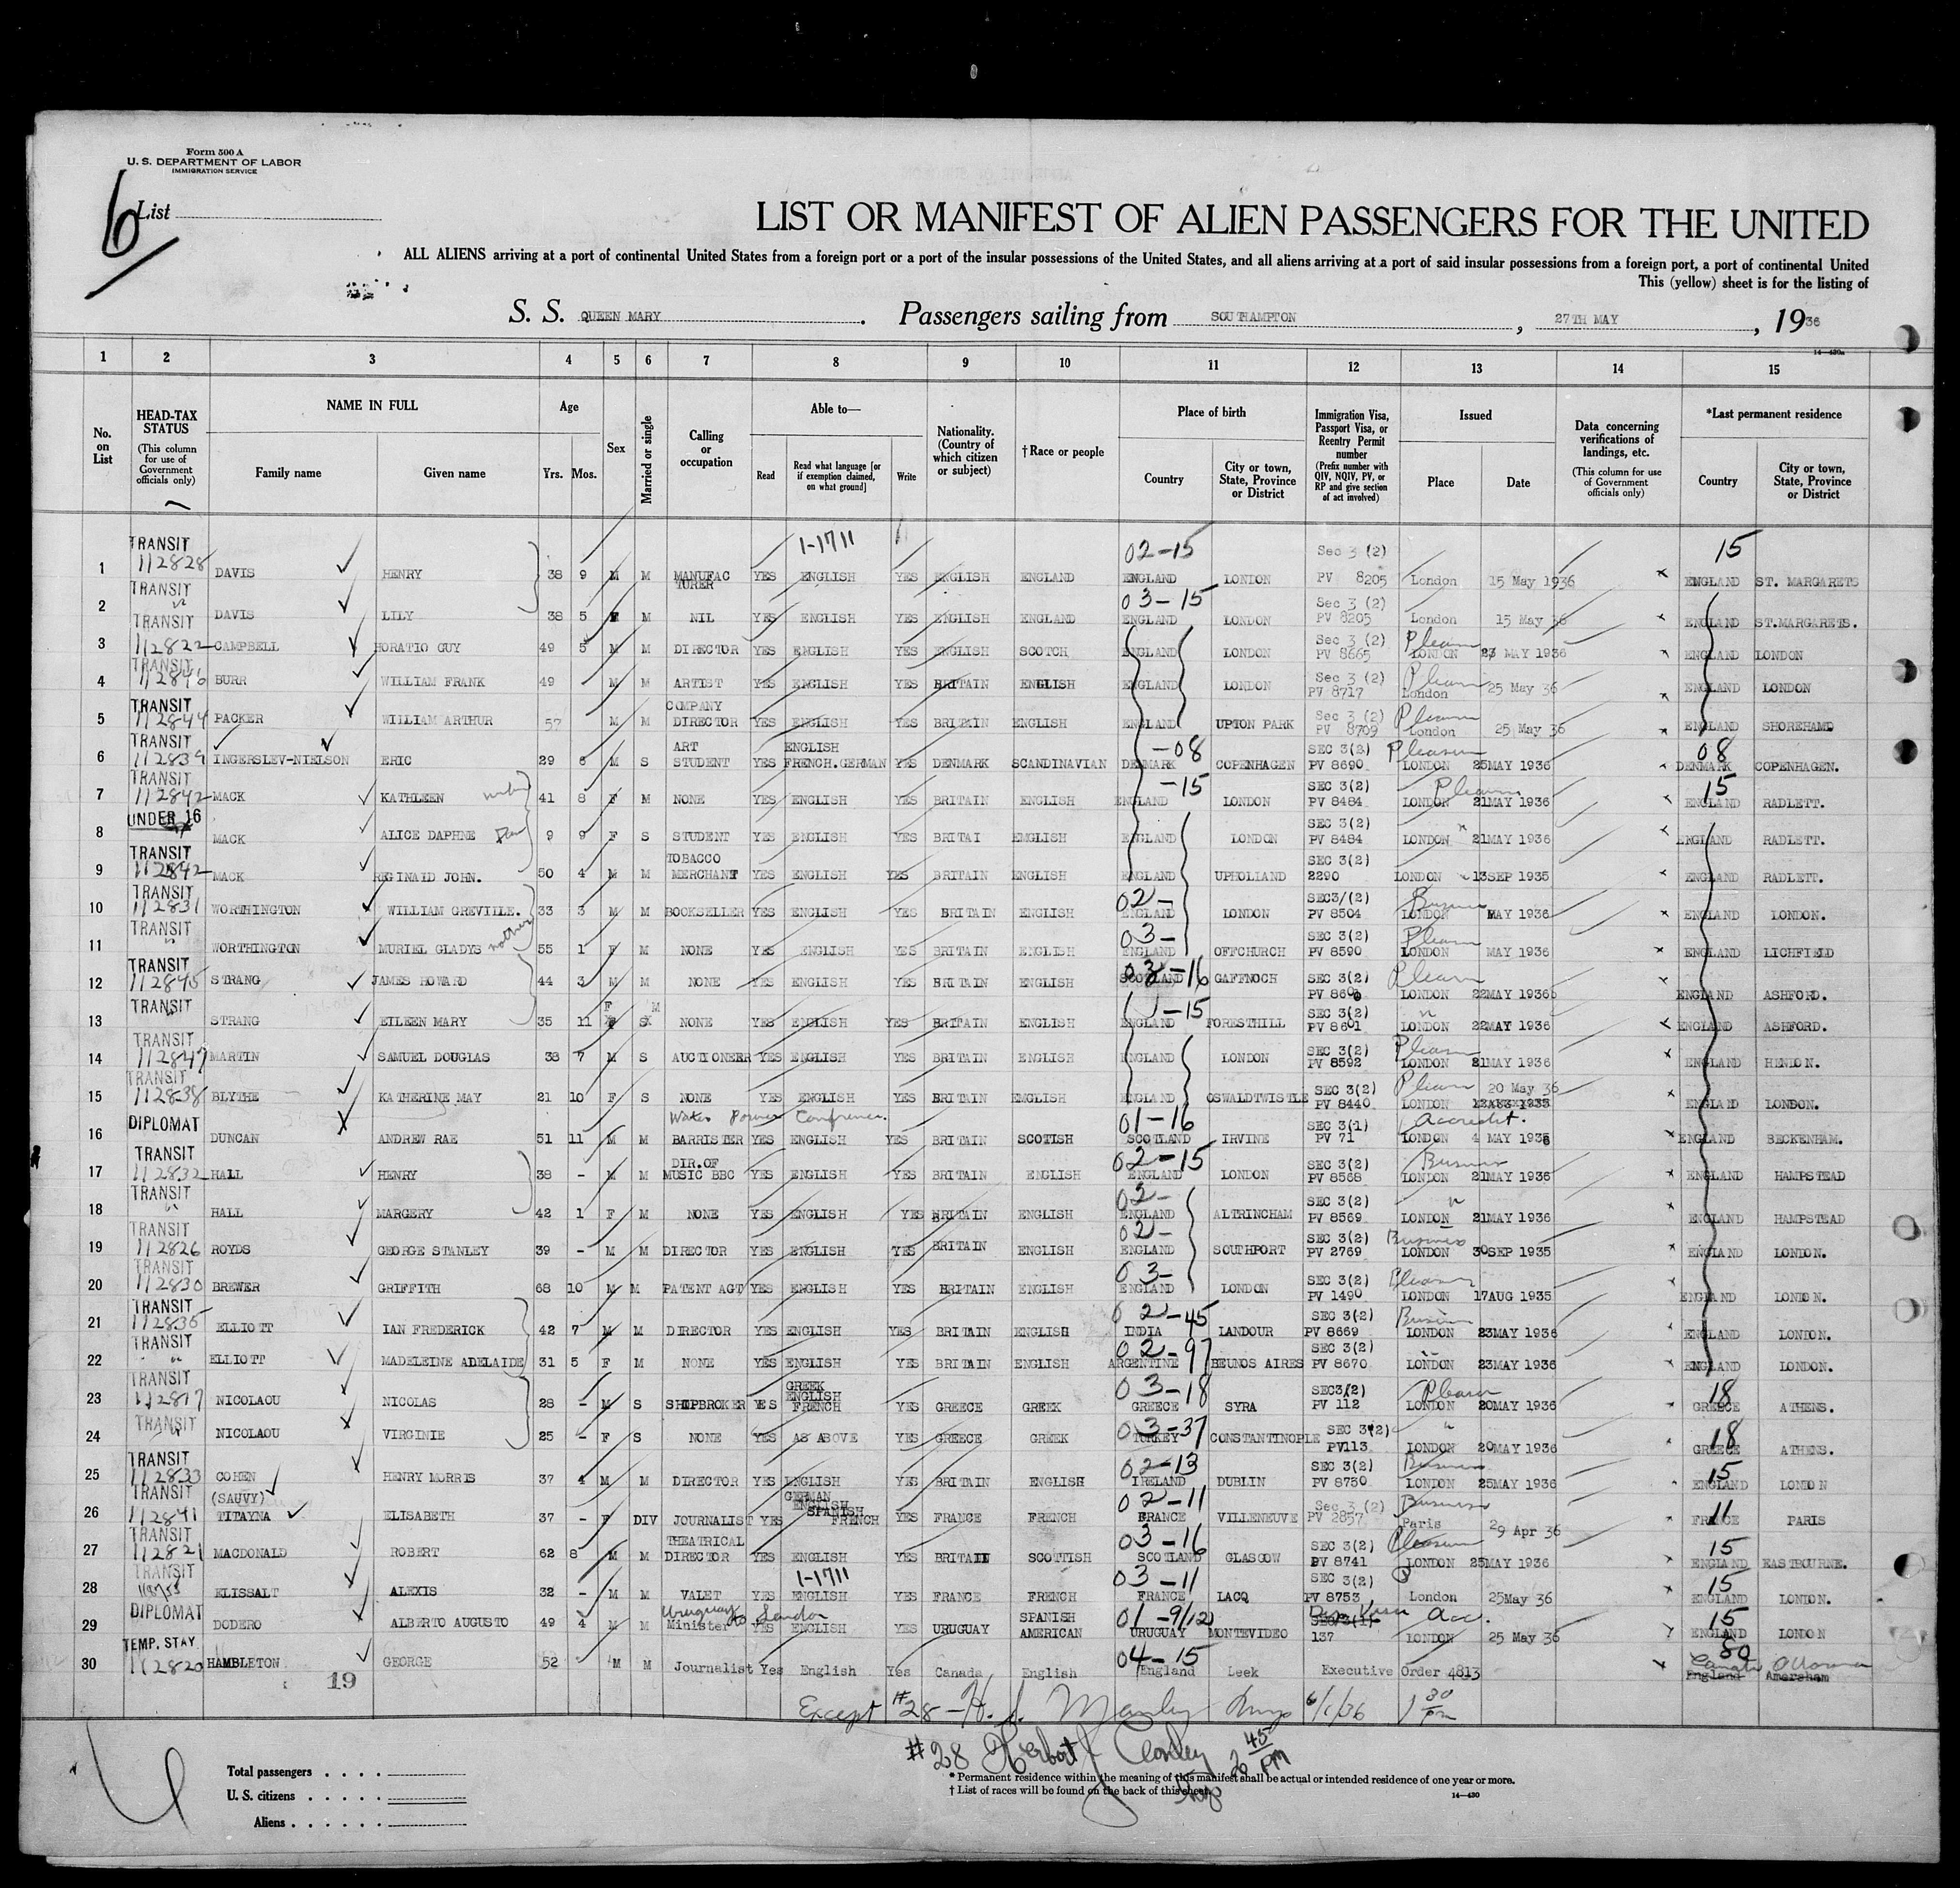 Form 500 A
U. S. DEPARTMENT OF LABOR
IMMIGRATION SERVICE
6
List
LIST OR MANIFEST OF ALIEN PASSENGERS FOR THE UNITED
ALL ALIENS arriving at a port of continental United States from a foreign port or a port of the insular possessions of the United States, and all aliens arriving at a port of said insular possessions from a foreign port, a port of continental United
This (yellow) sheet is for the listing of
S. S. QUEEN MARY. Passengers sailing from SOUTHAMPTON, 27TH MAY, 1936
14—430a
1 2 3 4 5 6 7 8 9 10 11 12 13 14 15
No. on List
HEAD-TAX STATUS (This column for use of Government officials only)
NAME IN FULL Family name Given name
Age Yrs. Mos.
Sex
Married or single
Calling or occupation
Able to— Read Read what language [or if exemption claimed, on what ground] Write
Nationality. (Country of which citizen or subject)
†Race or people
Place of birth Country City or town, State, Province or District
Immigration Visa, Passport Visa, or Reentry Permit number (Prefix number with QIV, NQIV, PV, or RP and give section of act involved)
Issued Place Date
Data concerning verifications of landings, etc. (This column for use of Government officials only)
*Last permanent residence Country City or town, State, Province or District
1 TRANSIT 112828 DAVIS HENRY 38 9 M M MANUFACTURER YES 1-1711 ENGLISH YES ENGLISH ENGLAND 02-15 ENGLAND LONDON Sec 3 (2) PV 8205 London 15 May 1936 15 ENGLAND ST. MARGARETS
2 TRANSIT " DAVIS LILY 38 5 F M NIL YES ENGLISH YES ENGLISH ENGLAND 03-15 ENGLAND LONDON Sec 3 (2) PV 8205 London 15 May 36 ENGLAND ST.MARGARETS.
3 TRANSIT 112822 CAMPBELL HORATIO GUY 49 5 M M DIRECTOR YES ENGLISH YES ENGLISH SCOTCH ENGLAND LONDON Sec 3 (2) PV 8665 LONDON 23 MAY 1936 ENGLAND LONDON
4 TRANSIT 112846 BURR WILLIAM FRANK 49 M M ARTIST YES ENGLISH YES BRITAIN ENGLISH ENGLAND LONDON Sec 3 (2) PV 8717 London 25 May 36 ENGLAND LONDON
5 TRANSIT 112844 PACKER WILLIAM ARTHUR 57 M M COMPANY DIRECTOR YES ENGLISH YES BRITAIN ENGLISH ENGLAND UPTON PARK Sec 3 (2) PV 8709 London 25 May 36 ENGLAND SHOREHAM
6 TRANSIT 112839 INGERSLEV-NIELSON ERIC 29 6 M S ART STUDENT YES ENGLISH FRENCH.GERMAN YES DENMARK SCANDINAVIAN -08 DENMARK COPENHAGEN SEC 3(2) PV 8690 Pleasure LONDON 25MAY 1936 08 DENMARK COPENHAGEN.
7 TRANSIT 112842 MACK KATHLEEN 41 8 F M NONE YES ENGLISH YES BRITAIN ENGLISH -15 ENGLAND LONDON SEC 3(2) PV 8484 LONDON 21MAY 1936 15 ENGLAND RADLETT.
8 UNDER 16 MACK ALICE DAPHNE 9 9 F S STUDENT YES ENGLISH YES BRITAI ENGLISH ENGLAND LONDON SEC 3(2) PV 8484 LONDON 21MAY 1936 ENGLAND RADLETT.
9 TRANSIT 112842 MACK REGINALD JOHN. 50 4 M M TOBACCO MERCHANT YES ENGLISH YES BRITAIN ENGLISH ENGLAND UPHOLLAND SEC 3(2) 2290 LONDON 13SEP 1935 ENGLAND RADLETT.
10 TRANSIT 112831 WORTHINGTON WILLIAM GREVILLE. 33 3 M M BOOKSELLER YES ENGLISH YES BRITAIN ENGLISH 02- ENGLAND LONDON SEC3/(2) PV 8504 LONDON MAY 1936 ENGLAND LONDON.
11 TRANSIT " WORTHINGTON MURIEL GLADYS mother 55 1 F M NONE YES ENGLISH YES BRITAIN ENGLISH 03- ENGLAND OFFCHURCH SEC 3(2) PV 8590 LONDON MAY 1936 ENGLAND LICHFIELD
12 TRANSIT 112845 STRANG JAMES HOWARD 44 3 M M NONE YES ENGLISH YES BRITAIN ENGLISH 03-16 SCOTLAND GAFFNOCH SEC 3(2) PV 860 LONDON 22MAY 1936 ENGLAND ASHFORD.
13 TRANSIT " STRANG EILEEN MARY 35 11 F M NONE YES ENGLISH YES BRITAIN ENGLISH -15 ENGLAND FORESTHILL SEC 3(2) PV 8601 LONDON 22MAY 1936 ENGLAND ASHFORD.
14 TRANSIT 112847 MARTIN SAMUEL DOUGLAS 38 7 M S AUCTIONEER YES ENGLISH YES BRITAIN ENGLISH ENGLAND LONDON SEC 3(2) PV 8592 LONDON 21MAY 1936 ENGLAND HENDON.
15 TRANSIT 112838 BLYTHE KATHERINE MAY 21 10 F S NONE YES ENGLISH YES BRITAIN ENGLISH ENGLAND OSWALDTWISTLE SEC 3(2) PV 8440 LONDON 20 May 36 ENGLAND LONDON.
16 DIPLOMAT DUNCAN ANDREW RAE 51 11 M M Power Conference. BARRISTER YES ENGLISH YES BRITAIN SCOTISH 01-16 SCOTLAND IRVINE SEC 3(1) PV 71 Accredit. LONDON 4 MAY 1936 ENGLAND BECKENHAM.
17 TRANSIT 112832 HALL HENRY 38 - M M DIR.OF MUSIC BBC YES ENGLISH YES BRITAIN ENGLISH 02-15 ENGLAND LONDON SEC 3(2) PV 8568 Business LONDON 21MAY 1936 ENGLAND HAMPSTEAD
18 TRANSIT " HALL MARGERY 42 1 F M NONE YES ENGLISH YES BRITAIN ENGLISH 02- ENGLAND ALTRINCHAM SEC 3(2) PV 8569 " LONDON 21MAY 1936 ENGLAND HAMPSTEAD
19 TRANSIT 112826 ROYDS GEORGE STANLEY 39 - M M DIRECTOR YES ENGLISH YES BRITAIN ENGLISH 02- ENGLAND SOUTHPORT SEC 3(2) PV 2769 Business LONDON 30SEP 1935 ENGLAND LONDON.
20 TRANSIT 112830 BREWER GRIFFITH 68 10 M M PATENT AGT YES ENGLISH YES BRITAIN ENGLISH 03- ENGLAND LONDON SEC 3(2) PV 1490 LONDON 17AUG 1935 ENGLAND LONDON.
21 TRANSIT 112836 ELLIOTT IAN FREDERICK 42 7 M M DIRECTOR YES ENGLISH YES BRITAIN ENGLISH 02-45 INDIA LANDOUR SEC 3(2) PV 8669 LONDON 23MAY 1936 ENGLAND LONDON.
22 TRANSIT " ELLIOTT MADELEINE ADELAIDE 31 5 F M NONE YES ENGLISH YES BRITAIN ENGLISH 02-97 ARGENTINE BEUNOS AIRES SEC 3(2) PV 8670 LONDON 23MAY 1936 ENGLAND LONDON.
23 TRANSIT 112817 NICOLAOU NICOLAS 28 - M S SHIPBROKER YES GREEK ENGLISH FRENCH YES GREECE GREEK 03-18 GREECE SYRA SEC3(2) PV 112 LONDON 20MAY 1936 18 GREECE ATHENS.
24 TRANSIT " NICOLAOU VIRGINIE 25 - F S NONE YES AS ABOVE YES GREECE GREEK 03-37 TURKEY CONSTANTINOPLE SEC 3(2) PV113 LONDON 20MAY 1936 18 GREECE ATHENS.
25 TRANSIT 112833 COHEN HENRY MORRIS 37 4 M M DIRECTOR YES ENGLISH YES BRITAIN ENGLISH 02-13 IRELAND DUBLIN SEC 3(2) PV 8750 Business LONDON 25MAY 1936 15 ENGLAND LONDON
26 TRANSIT 112841 (SAUVY) TITAYNA ELISABETH 37 - F DIV JOURNALIST YES GERMAN ENGLISH SPANISH FRENCH YES FRANCE FRENCH 02-11 FRANCE VILLENEUVE Sec 3 (2) PV 2857 Business Paris 29 Apr 36 11 FRANCE PARIS
27 TRANSIT 112821 MACDONALD ROBERT 62 8 M M THEATRICAL DIRECTOR YES ENGLISH YES BRITAIN SCOTTISH 03-16 SCOTLAND GLASGOW SEC 3(2) PV 8741 Pleasure LONDON 25MAY 1936 15 ENGLAND EASTBOURNE.
28 TRANSIT ELISSALT ALEXIS 32 - M M VALET YES 1-1711 ENGLISH YES FRANCE FRENCH 03-11 FRANCE LACQ SEC 3(2) PV 8753 P London 25May 36 15 ENGLAND LONDON.
29 DIPLOMAT DODERO ALBERTO AUGUSTO 49 4 M M Uruguay Minister to London YES ENGLISH YES URUGUAY SPANISH AMERICAN 01-9/12 URUGUAY MONTEVIDEO SEC 3(1) 137 Acc. LONDON 25 May 36 15 ENGLAND LONDON
30 TEMP. STAY 112820 HAMBLETON GEORGE 52 M M Journalist Yes English Yes Canada English 04-15 England Leek Executive Order 4813 80 Canada Ottawa England Amersham
19
Except #28 - H. J. Manley Insp 6/1/36 1 30 pm
#28 Herbert J Conley Insp 2 45 PM
Total passengers . . . .
U. S. citizens . . . . .
Aliens . . . . . .
* Permanent residence within the meaning of this manifest shall be actual or intended residence of one year or more.
† List of races will be found on the back of this sheet.
14—430